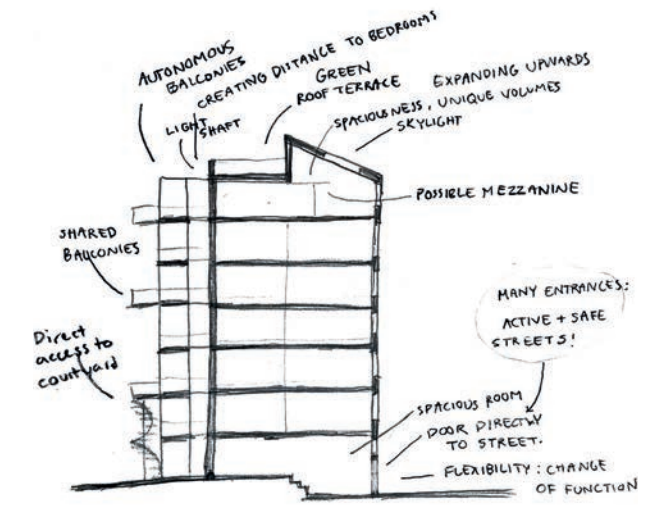 AUTONOMOUS
BALCONIES
CREATING DISTANCE TO BEDROOMS
LIGHT
SHAFT
GREEN
ROOF TERRACE
EXPANDING UPWARDS
SPACIOUSNESS, UNIQUE VOLUMES
SKYLIGHT
POSSIBLE MEZZANINE
SHARED
BALCONIES
Direct
access to
courtyard
MANY ENTRANCES:
ACTIVE + SAFE
STREETS!
SPACIOUS ROOM
DOOR DIRECTLY
TO STREET.
FLEXIBILITY: CHANGE
OF FUNCTION